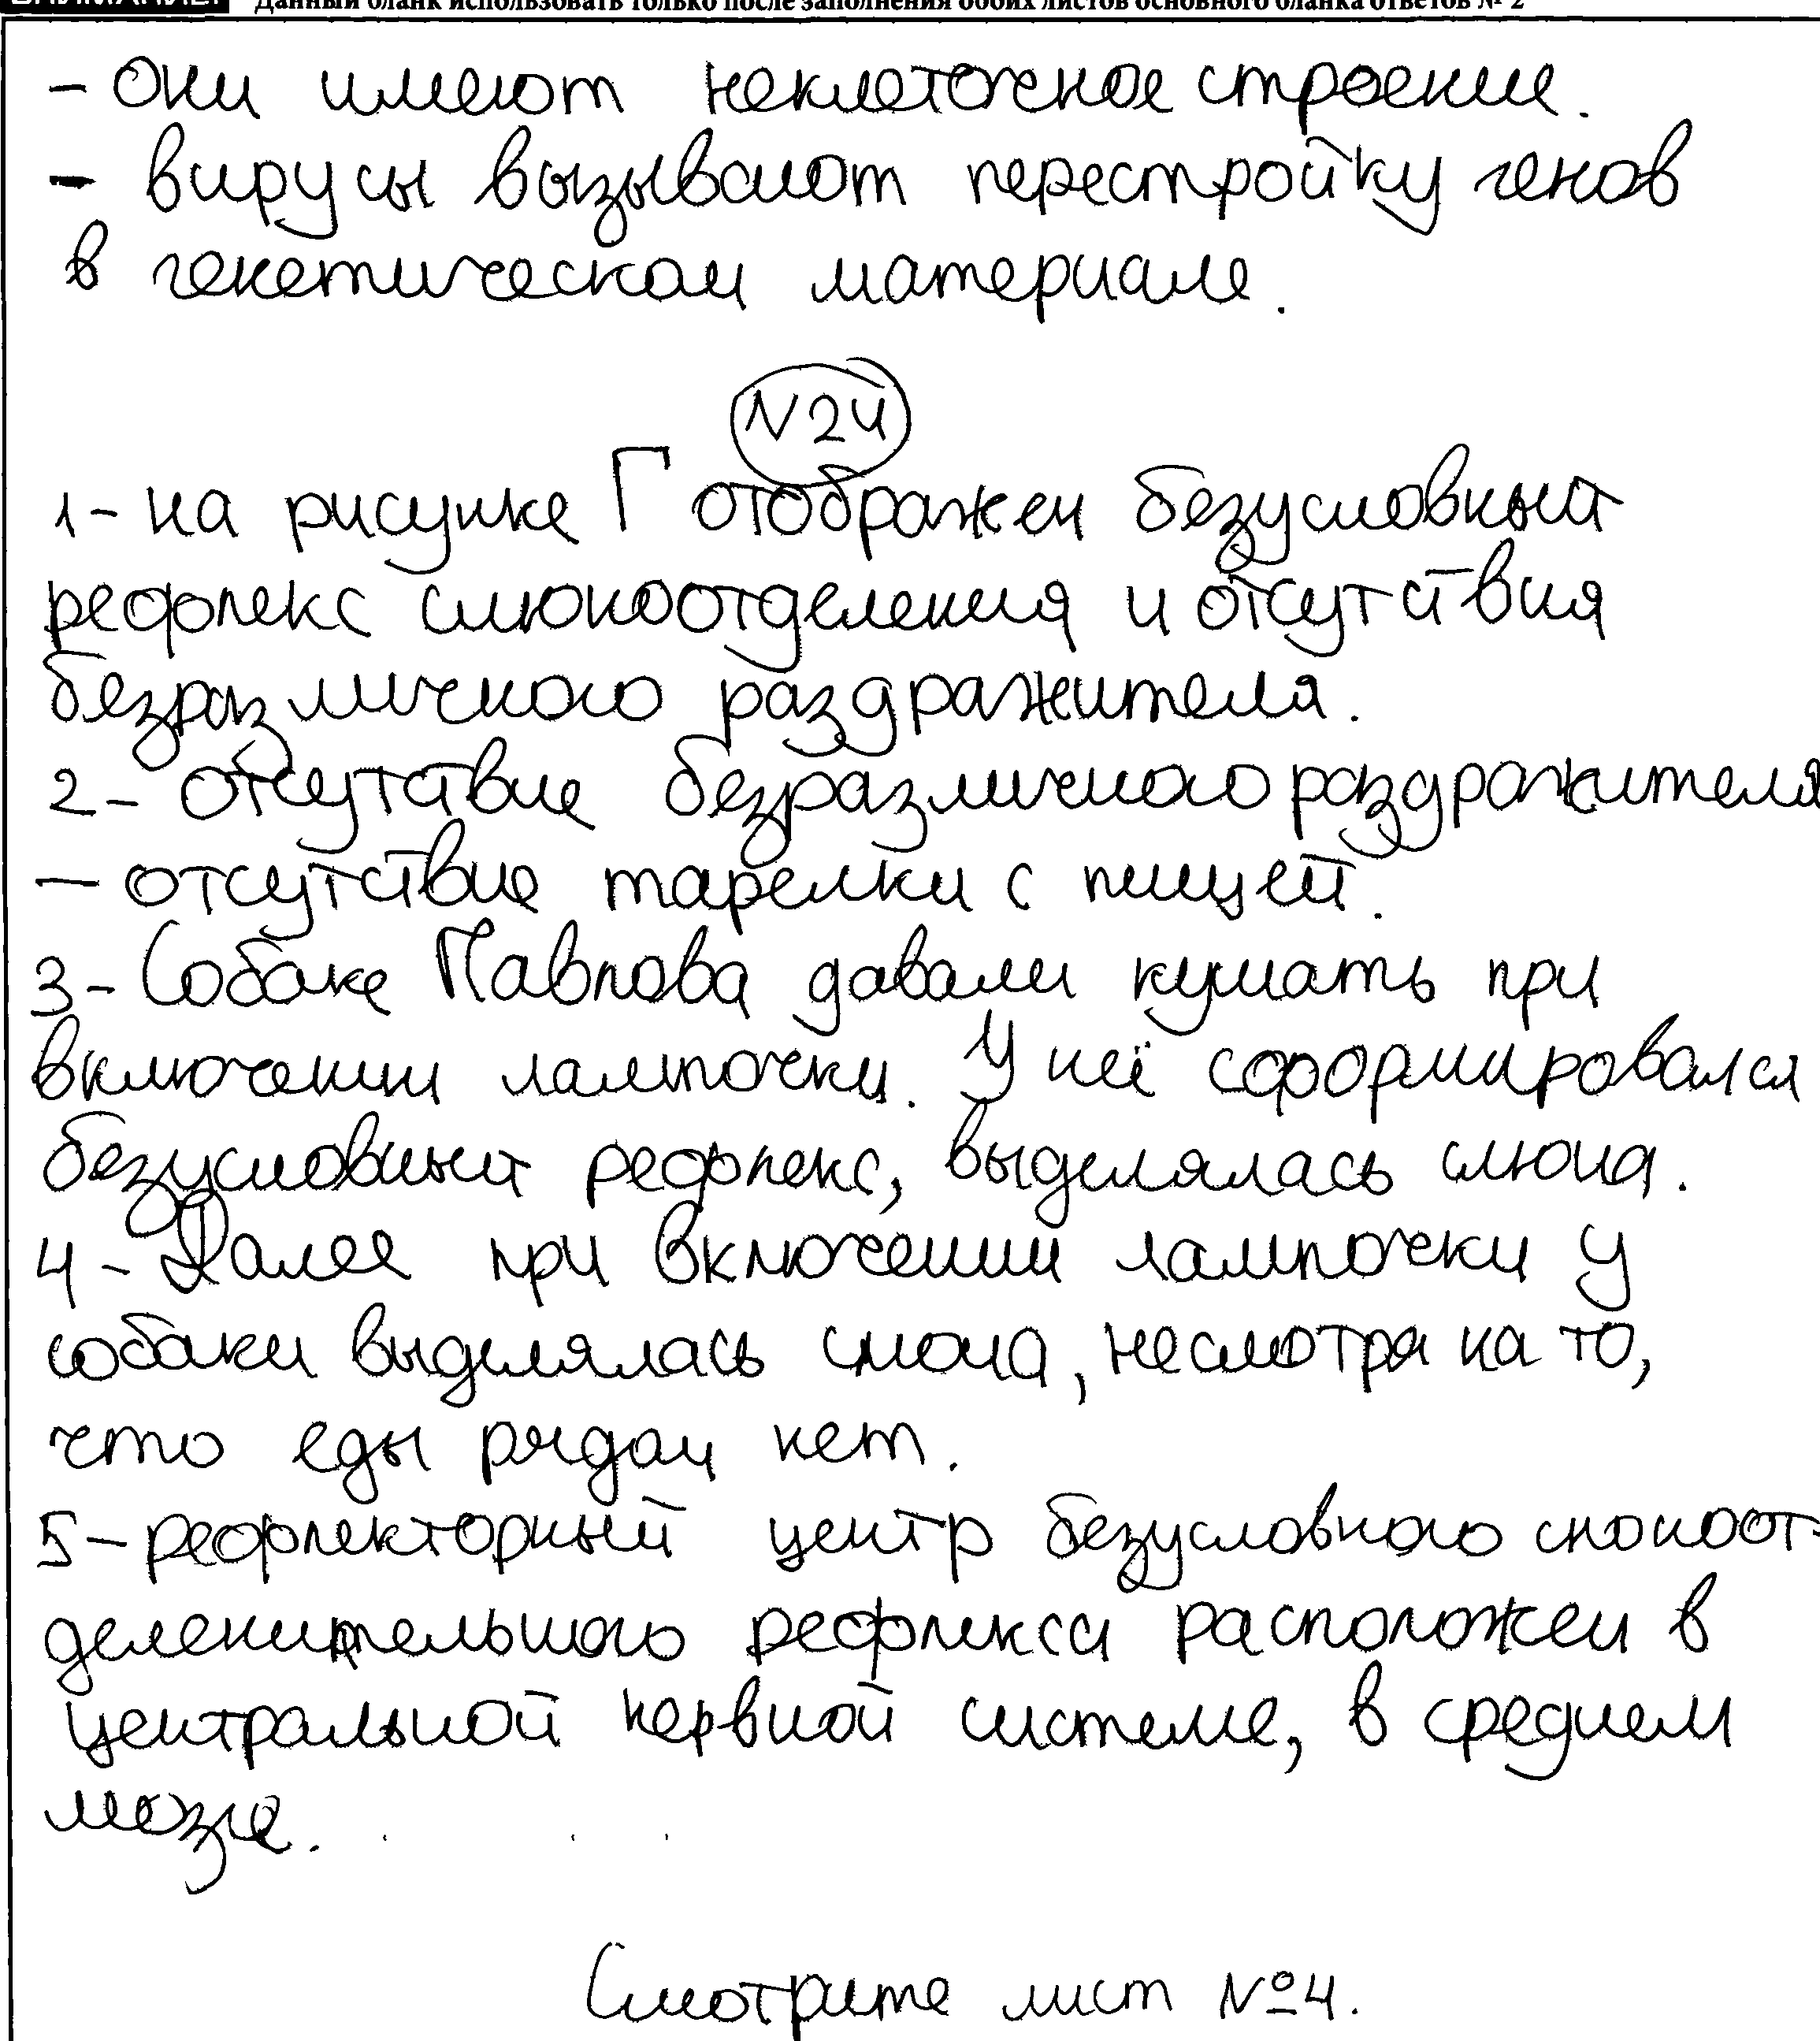 Данный бланк использовать только после заполнения обоих листов основного бланка ответов № 2
- Они имеют неклеточное строение.
- вирусы вызывают перестройку генов
в генетическом материале.
N24
1- на рисунке Г отображен безусловный
рефлекс слюноотделения и отсутствия
безразличного раздражителя.
2- отсутствие безразличного раздражителя
- отсутствие тарелки с пищей.
3- Собаке Павлова давали кушать при
включении лампочки. У неё сформировался
безусловный рефлекс, выделялась слюна.
4- Далее при включении лампочки у
собаки выделялась слюна, несмотря на то,
что еды рядом нет.
5- рефлекторный центр безусловного слюноот-
делительного рефлекса расположен в
центральной нервной системе, в среднем
мозге.
Смотрите лист №4.